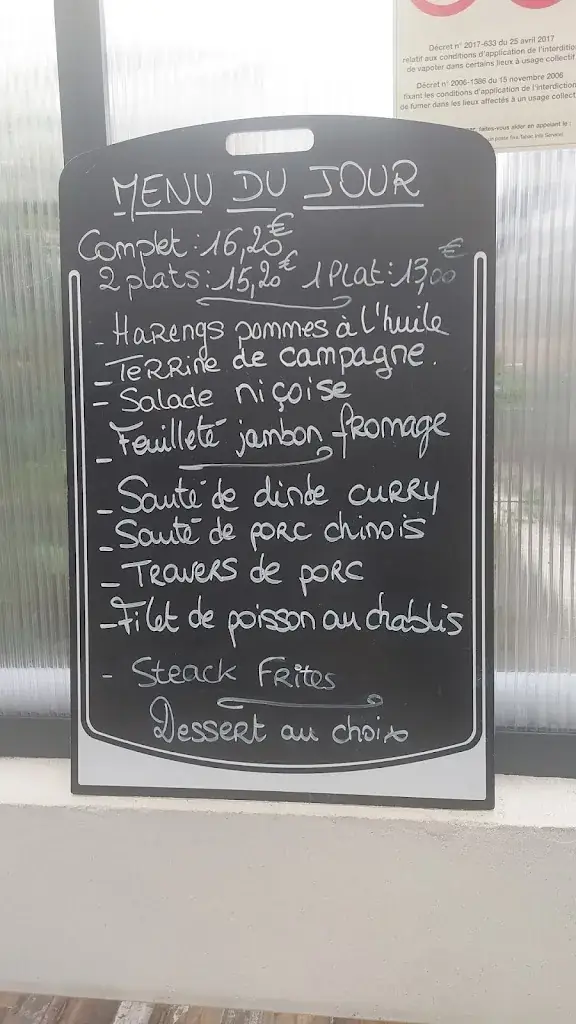 Décret n° 2017-633 du 25 avril 2017
relatif aux conditions d'application de l'interdiction
de vapoter dans certains lieux à usage collectif
Décret n° 2006-1386 du 15 novembre 2006
fixant les conditions d'application de l'interdiction
de fumer dans les lieux affectés à un usage collectif
faites-vous aider en appelant le :
MENU DU JOUR
Complet : 16,20€
2 plats : 15,20€ 1 Plat : 13,00€
- Harengs pommes à l'huile
- Terrine de campagne.
- Salade niçoise
- Feuilleté jambon fromage
- Sauté de dinde curry
- Sauté de porc chinois
- Travers de porc
- Filet de poisson au chablis
- Steack Frites
Dessert au choix